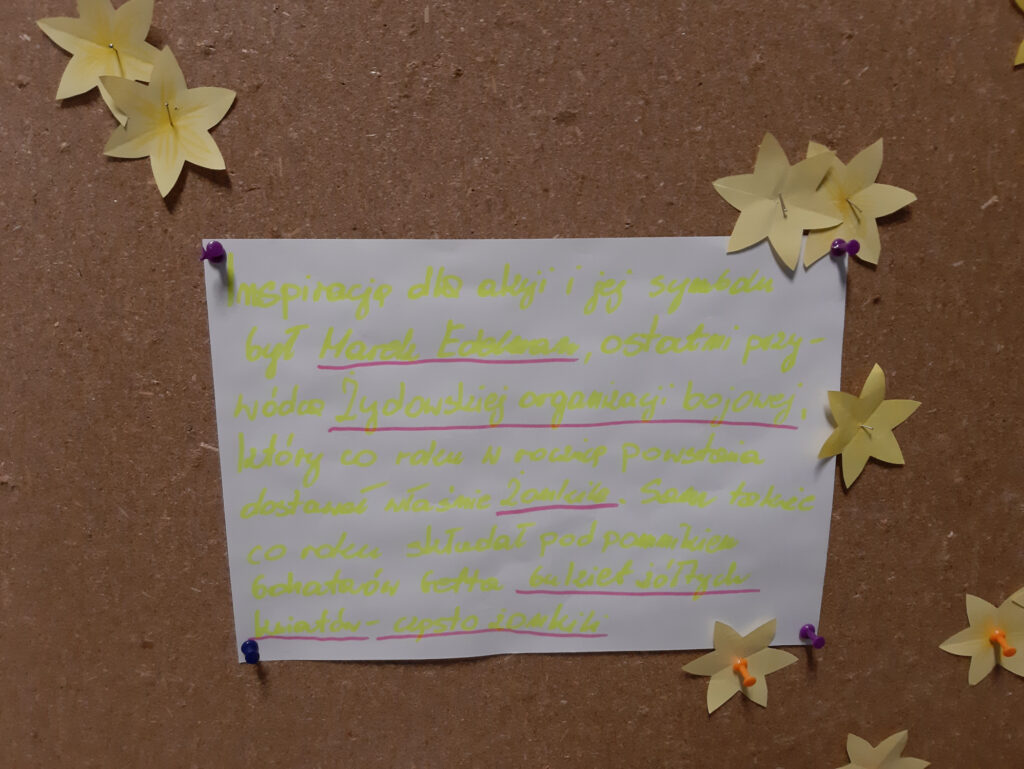 Inspiracją dla akcji i jej symbolu
był Marek Edelman, ostatni przy-
wódca Żydowskiej organizacji bojowej,
który co roku w rocznicę powstania
dostawał właśnie żonkile. Sam także
co roku składał pod pomnikiem
bohaterów Getta bukiet żółtych
kwiatów - często żonkile